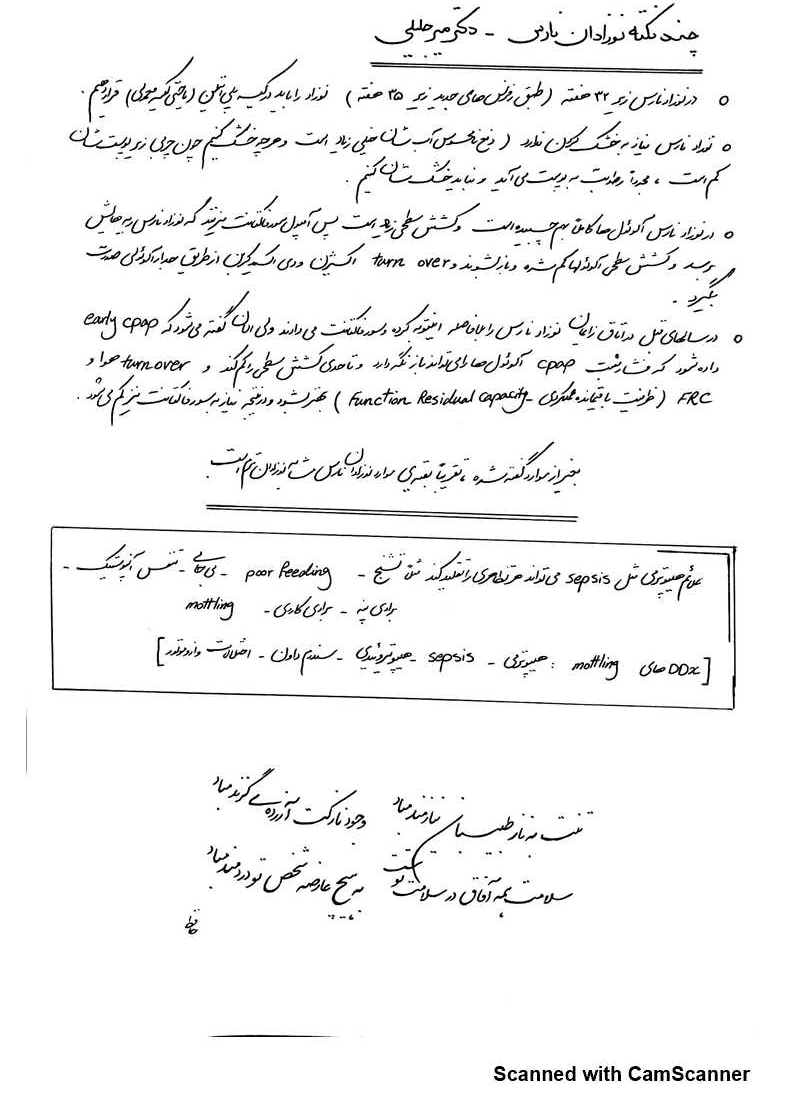 چند نکته نوزادان نارس - دکتر میر جلیلی
o در نوزاد نارس زیر ۳۲ هفته (طبق رفرنس های جدید زیر ۳۵ هفته) نوزاد را باید در کیسه پلی اتیلن (یا حتی کیسه معمولی) قرار دهیم.
o نوزاد نارس نیاز به خشک کردن ندارد (دفع نامحسوس آب شان خیلی زیاد است و هرچه خشک کنیم چون چربی زیر پوست شان
کم است، مجدداً رطوبت به پوست می آید و نباید خشک شان کنیم.
o در نوزاد نارس آلوئول ها کاملاً بهم چسبیده است و کشش سطحی زیاد است پس آمپول سورفاکتانت میزنند که نوزاد نارس ریه هایش
برسد و کشش سطحی آلوئولها کم شده و باز بشوند و turn over اکسیژن و دی اکسید کربن از طریق جدار آلوئولی صورت
بگیرد.
o در سالهای قبل در اتاق زایمان نوزاد نارس را بلافاصله اینتوبه کرده و سورفاکتانت می دادند ولی الان گفته می شود که early cpap
داده شود که فشار مثبت cpap آلوئول ها را می تواند باز نگه دارد و تا حدی کشش سطحی را کم کند و turn over هوا و
FRC (ظرفیت باقیمانده عملکردی - Function Residual capacity) بهتر بشود و در نتیجه نیاز به سورفاکتانت نیز کم می شود.
بغیر از موارد گفته شده، تقریباً بقیه ی موارد نوزادان نارس مشابه نوزادان ترم است.
علائم هیپوترمی مثل sepsis می تواند هر تظاهری را تقلید کند مثل تشنج - poor feeding - بی حالی - تنفس آپنوستیک -
برادی پنه - برادی کاردی - mottling
[DDx های mottling : هیپوترمی - sepsis - هیپوتیروئیدی - سندرم داون - اختلالات وازوموتور]
تنت به ناز طبیبان نیازمند مباد وجود نازکت آزرده ی گزند مباد
سلامت همه آفاق در سلامت توست به هیچ عارضه شخص تو دردمند مباد
حافظ
Scanned with CamScanner